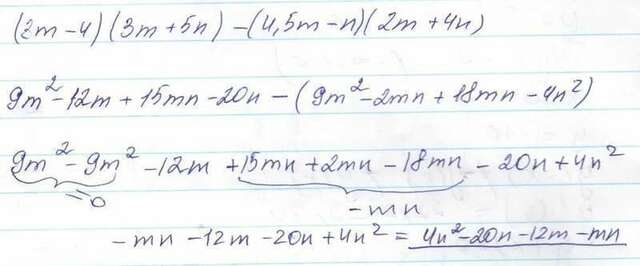 (3m-4)(3m+5n)-(4,5m-n)(2m+4n)
9m²-12m+15mn-20n-(9m²-2mn+18mn-4n²)
9m²-9m²-12m+15mn+2mn-18mn-20n+4n²
=0
-mn
-mn-12m-20n+4n²=4n²-20n-12m-mn